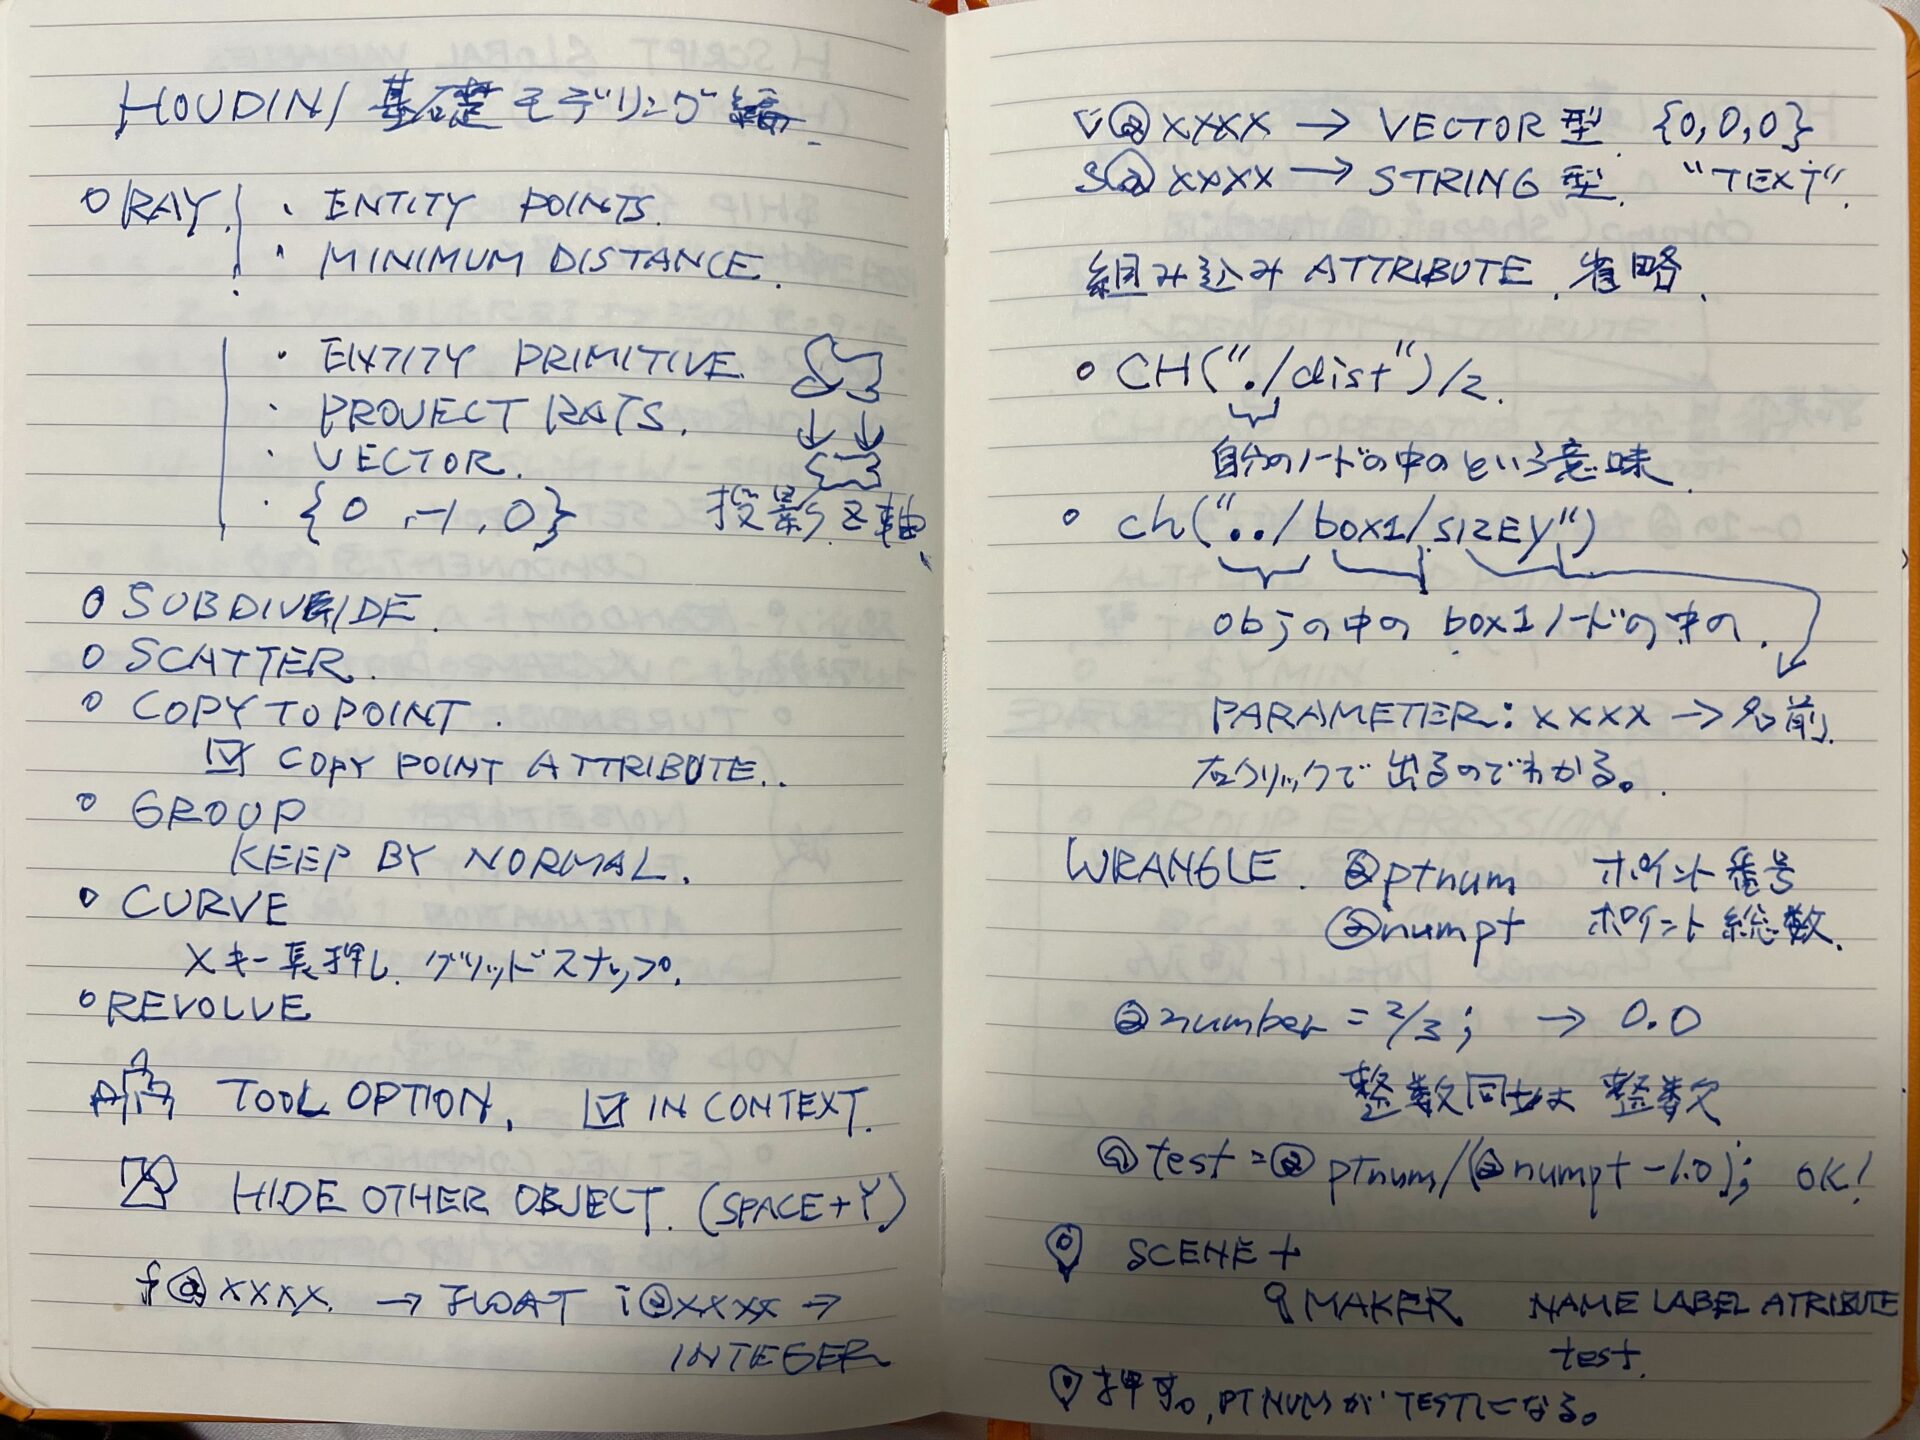 HOUDINI 基礎モデリング編.
○ RAY. ・ ENTITY POINTS.
・ MINIMUM DISTANCE.
・ ENTITY PRIMITIVE.
・ PROJECT RAYS.
・ VECTOR.
・ {0, -1, 0} 投影, Z軸.
○ SUBDIVIDE.
○ SCATTER.
○ COPY TO POINT.
☑ COPY POINT ATTRIBUTE..
○ GROUP
KEEP BY NORMAL.
○ CURVE
Xキー長押し. グリッドスナップ.
○ REVOLVE
TOOL OPTION. ☑ IN CONTEXT.
HIDE OTHER OBJECT. (SPACE+Y)
f@xxxx. → FLOAT i@xxxx →
INTEGER
v@xxxx → VECTOR型. {0,0,0}
s@xxxx → STRING型. "TEXT".
組み込み ATTRIBUTE. 省略.
○ CH("./dist")/2.
自分のノードの中のという意味.
○ ch("../box1/sizey")
objの中の box1ノードの中の.
PARAMETER: xxxx → 名前.
右クリックで出るのでわかる。.
WRANGLE. @ptnum ポイント番号
@numpt ポイント総数.
@number = 2/3; → 0.0
整数同士は整数
@test = @ptnum/(@numpt-1.0); OK!
SCENE +
MAKER NAME LABEL ATRIBUTE
test.
押す。, PTNUMが TESTになる。